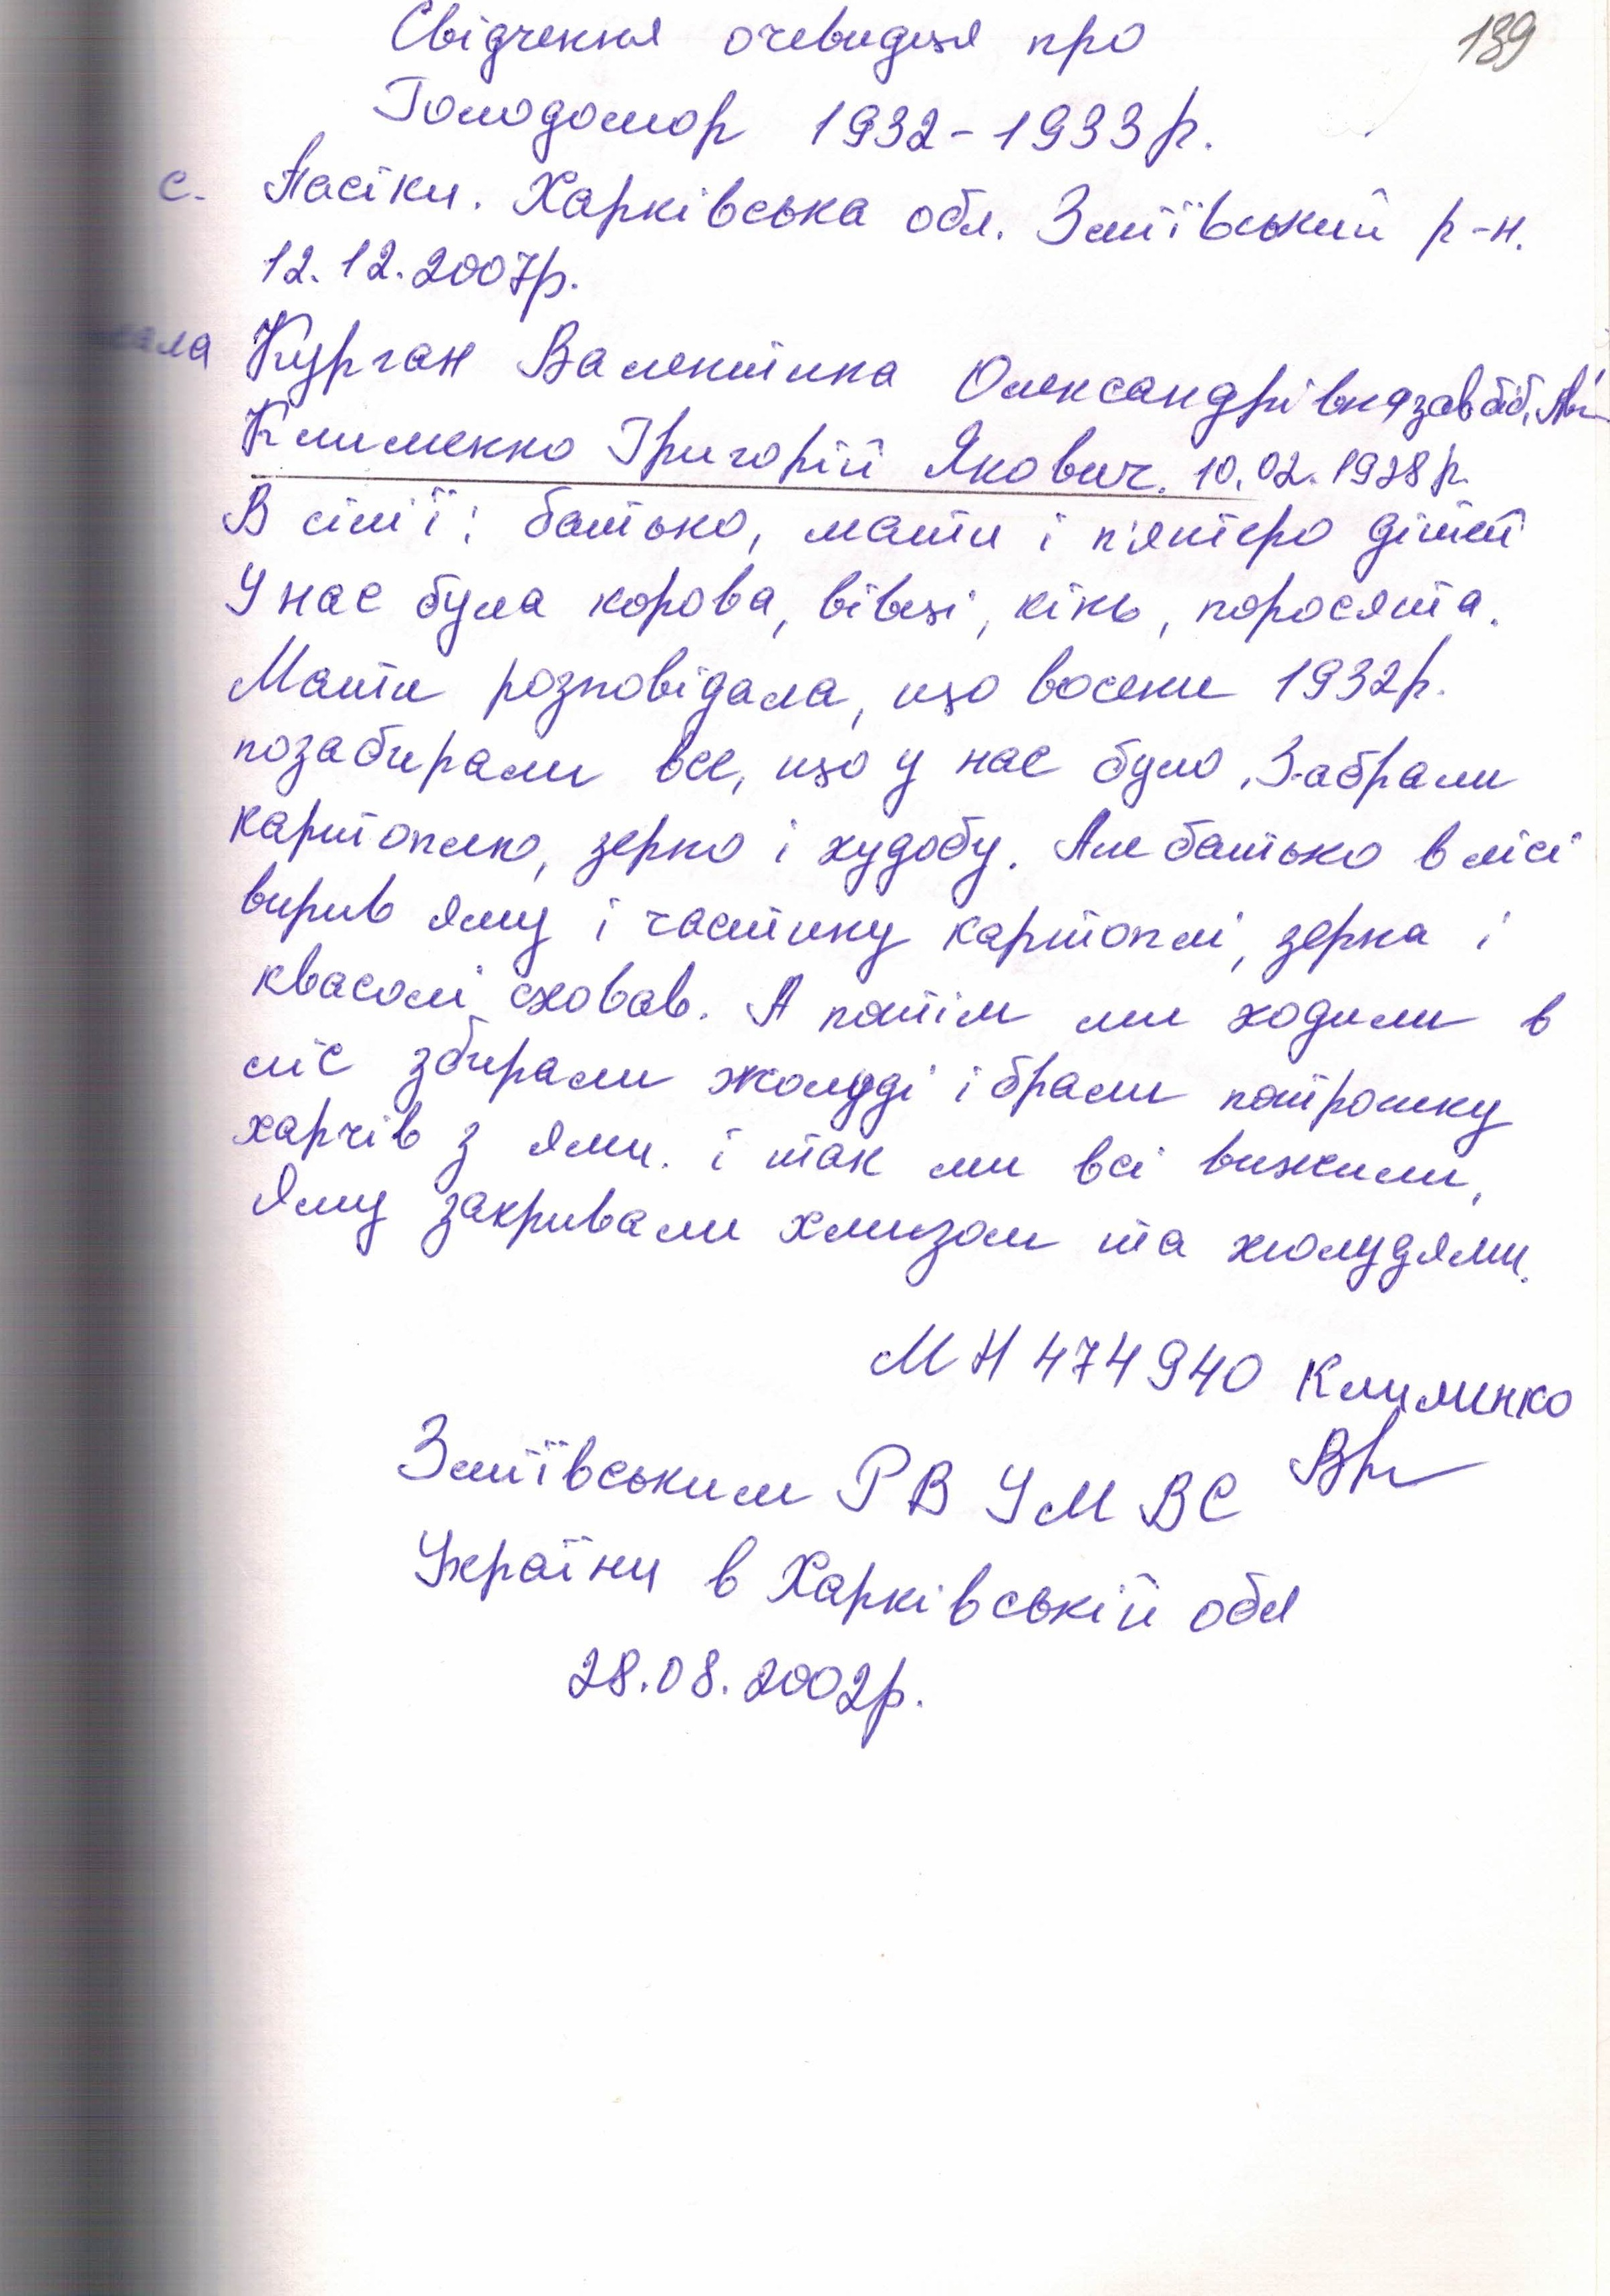 139
Свідчення очевидця про
Голодомор 1932-1933р.
с. Пасіки. Харківська обл. Зміївський р-н.
12.12.2007р.
Курган Валентина Олександрівна зав біб.
Клименко Григорій Якович. 10.02.1928р.
В сімї: батько, мати і п'ятеро дітей
У нас була корова, вівці, кінь, поросята.
Мати розповідала, що восени 1932р.
позабирали все, що у нас було. Забрали
картоплю, зерно і худобу. Але батько в лісі
вирив яму і частину картоплі, зерна і
квасолі сховав. А потім ми ходили в
ліс збирали жолуді і брали потрошку
харчів з ями. і так ми всі вижили.
Яму закривали хмизом та жолудями.
МН 474940 Клименко
Зміївським РВ УМВС
України в Харківській обл
28.08.2002р.